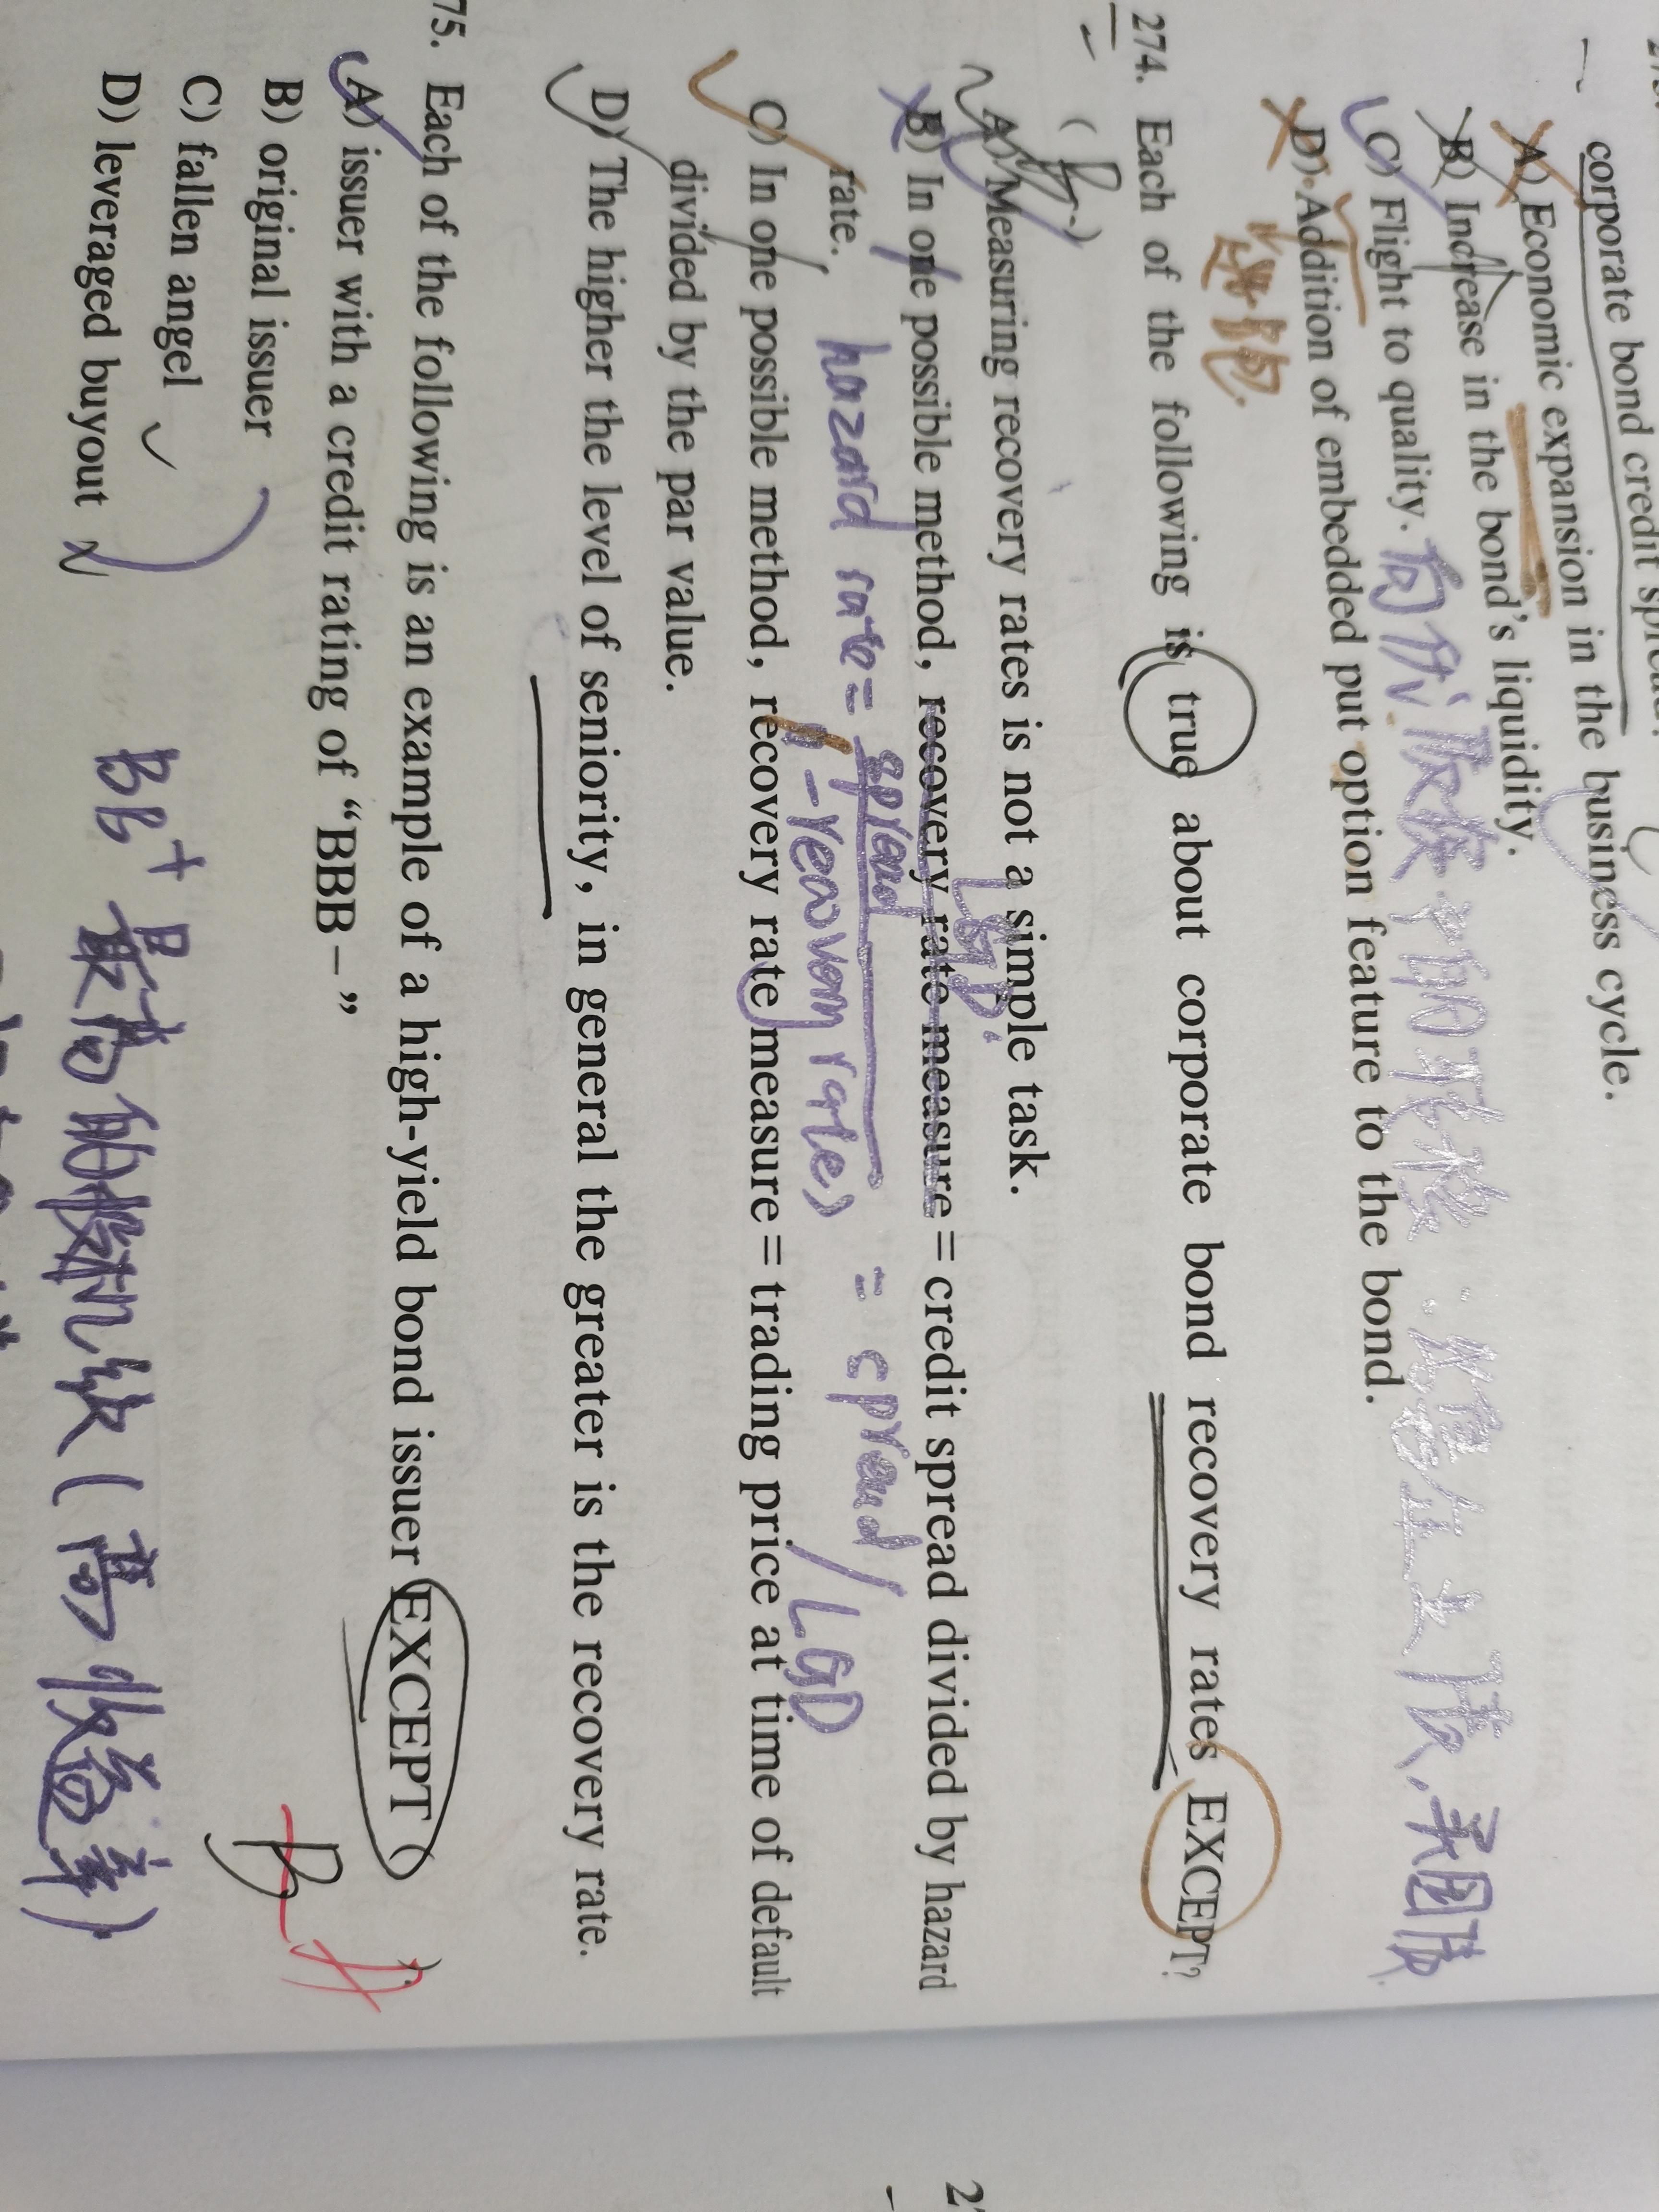 corporate bond credit
A) Economic expansion in the business cycle.
B) Increase in the bond's liquidity.
C) Flight to quality.
D) Addition of embedded put option feature to the bond.
274. Each of the following is true about corporate bond recovery rates EXCEPT?
A) Measuring recovery rates is not a simple task.
LGD.
B) In one possible method, recovery rate measure = credit spread divided by hazard
rate.
hazard rate = spread
= spread / LGD
C) In one possible method, recovery rate measure = trading price at time of default
divided by the par value.
D) The higher the level of seniority, in general the greater is the recovery rate.
75. Each of the following is an example of a high-yield bond issuer EXCEPT
A) issuer with a credit rating of “BBB－”
B) original issuer
C) fallen angel
D) leveraged buyout
B A
BB+ 是最高的投机级(高收益率)